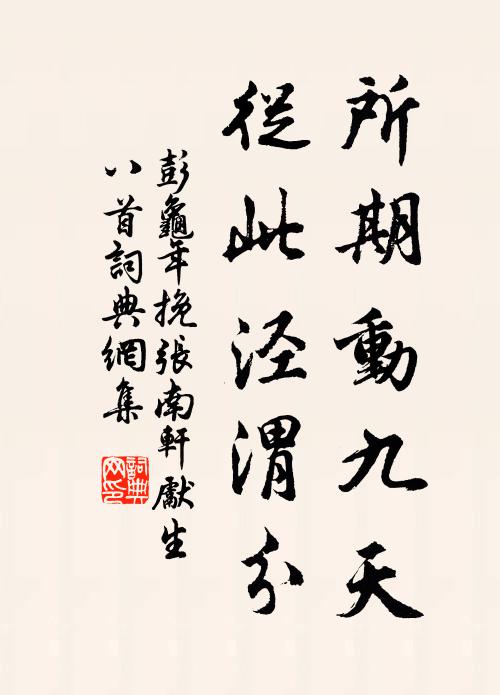 所期動九天
從此涇渭分
彭龜年挽張南軒獻生
八首詞典網集
詞典
网印